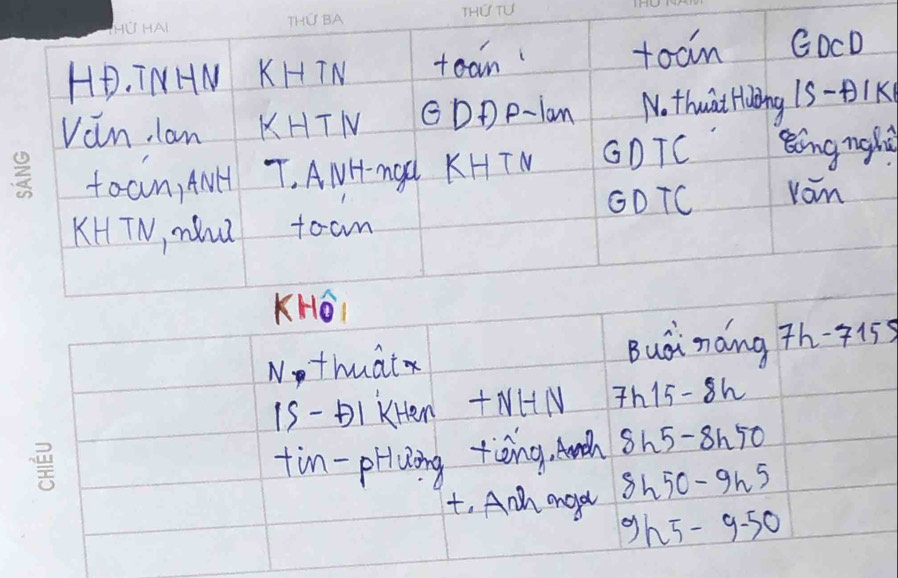 THỨ HAI THỨ BA THỨ TƯ
HĐ.TNHN KHTN toán toán GDCD
Văn.lan KHTN GDĐP-lan N.thuật Hường lS-Đl
toán, ANH T.ANH-nga KHTN GDTC công nghệ
KHTN, như toán GDTC văn
SÁNG
KHÔI
N.thuật Buổi sáng 7h-715
lS-Đl KHen tNHN 7h15-8h
tin-pHương tiếng.Anh 8h5-8h50
t.Anh nga 8h50-9h5
9h5-9-50
CHIỀU